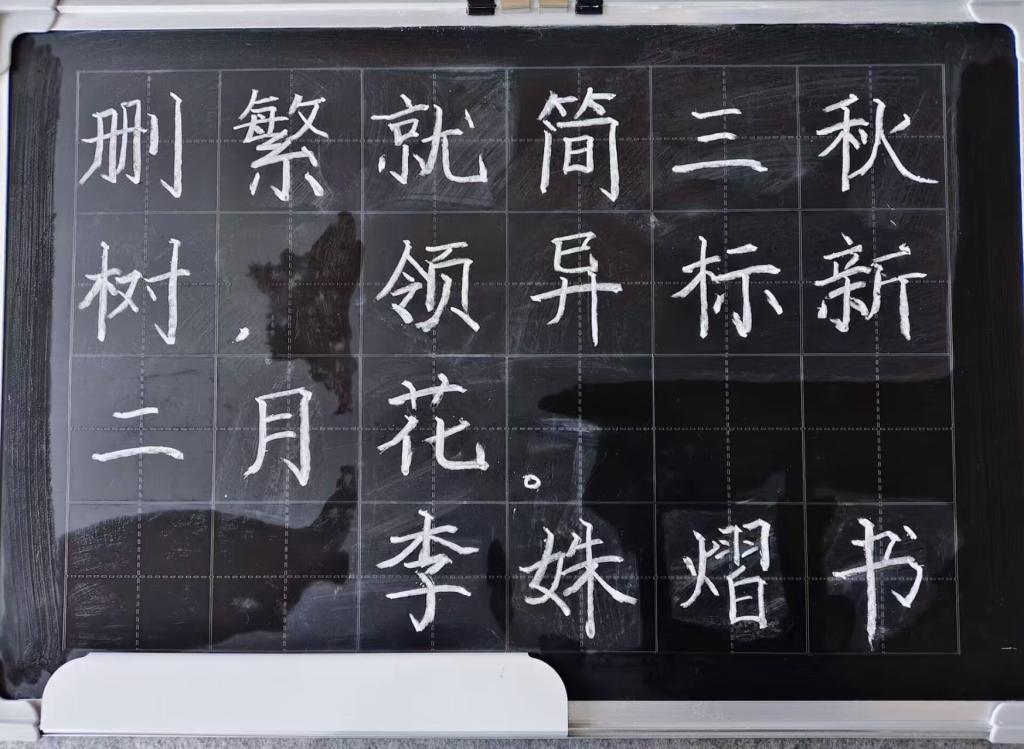 删繁就简三秋
树,领异标新
二月花。
李姝熠书